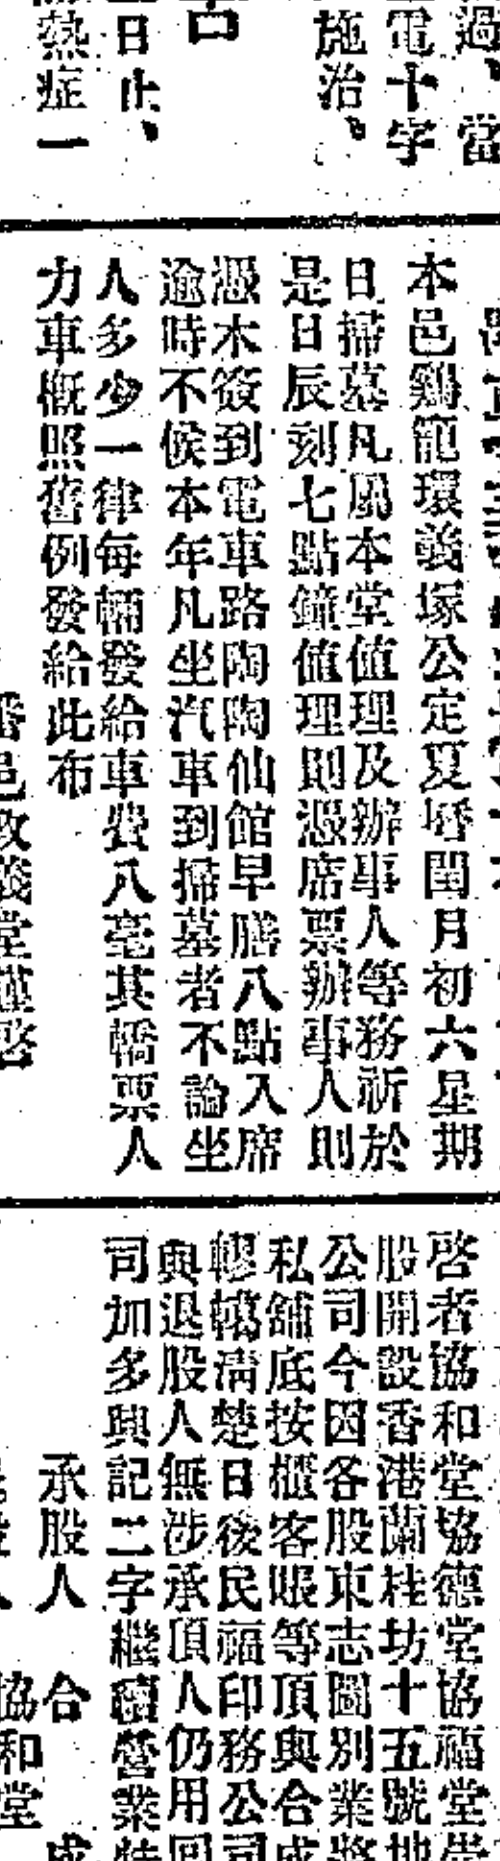 過、當
電十字
施治、
日止、
熱症一
本邑鷄籠環義塚公定夏曆閏月初六星期
日掃墓凡屬本堂值理及辦事人等務祈於
是日辰刻七點鐘值理則憑席票辦事人則
憑木簽到電車路陶陶仙館早膳八點入席
逾時不候本年凡坐汽車到掃墓者不論坐
人多少一律每輛發給車費八毫其轎票人
力車概照舊例發給此布
邑敦義堂謹啓
啓者協和堂協德堂協福堂
股開設香港蘭桂坊十五號地
公司今因各股東志圖別業將
私舖底按櫃客賬等頂與合成
轇轕清楚日後民福印務公司
與退股人無涉承頂人仍用回
司加多興記二字繼續營業特
承股人 合成
協和堂